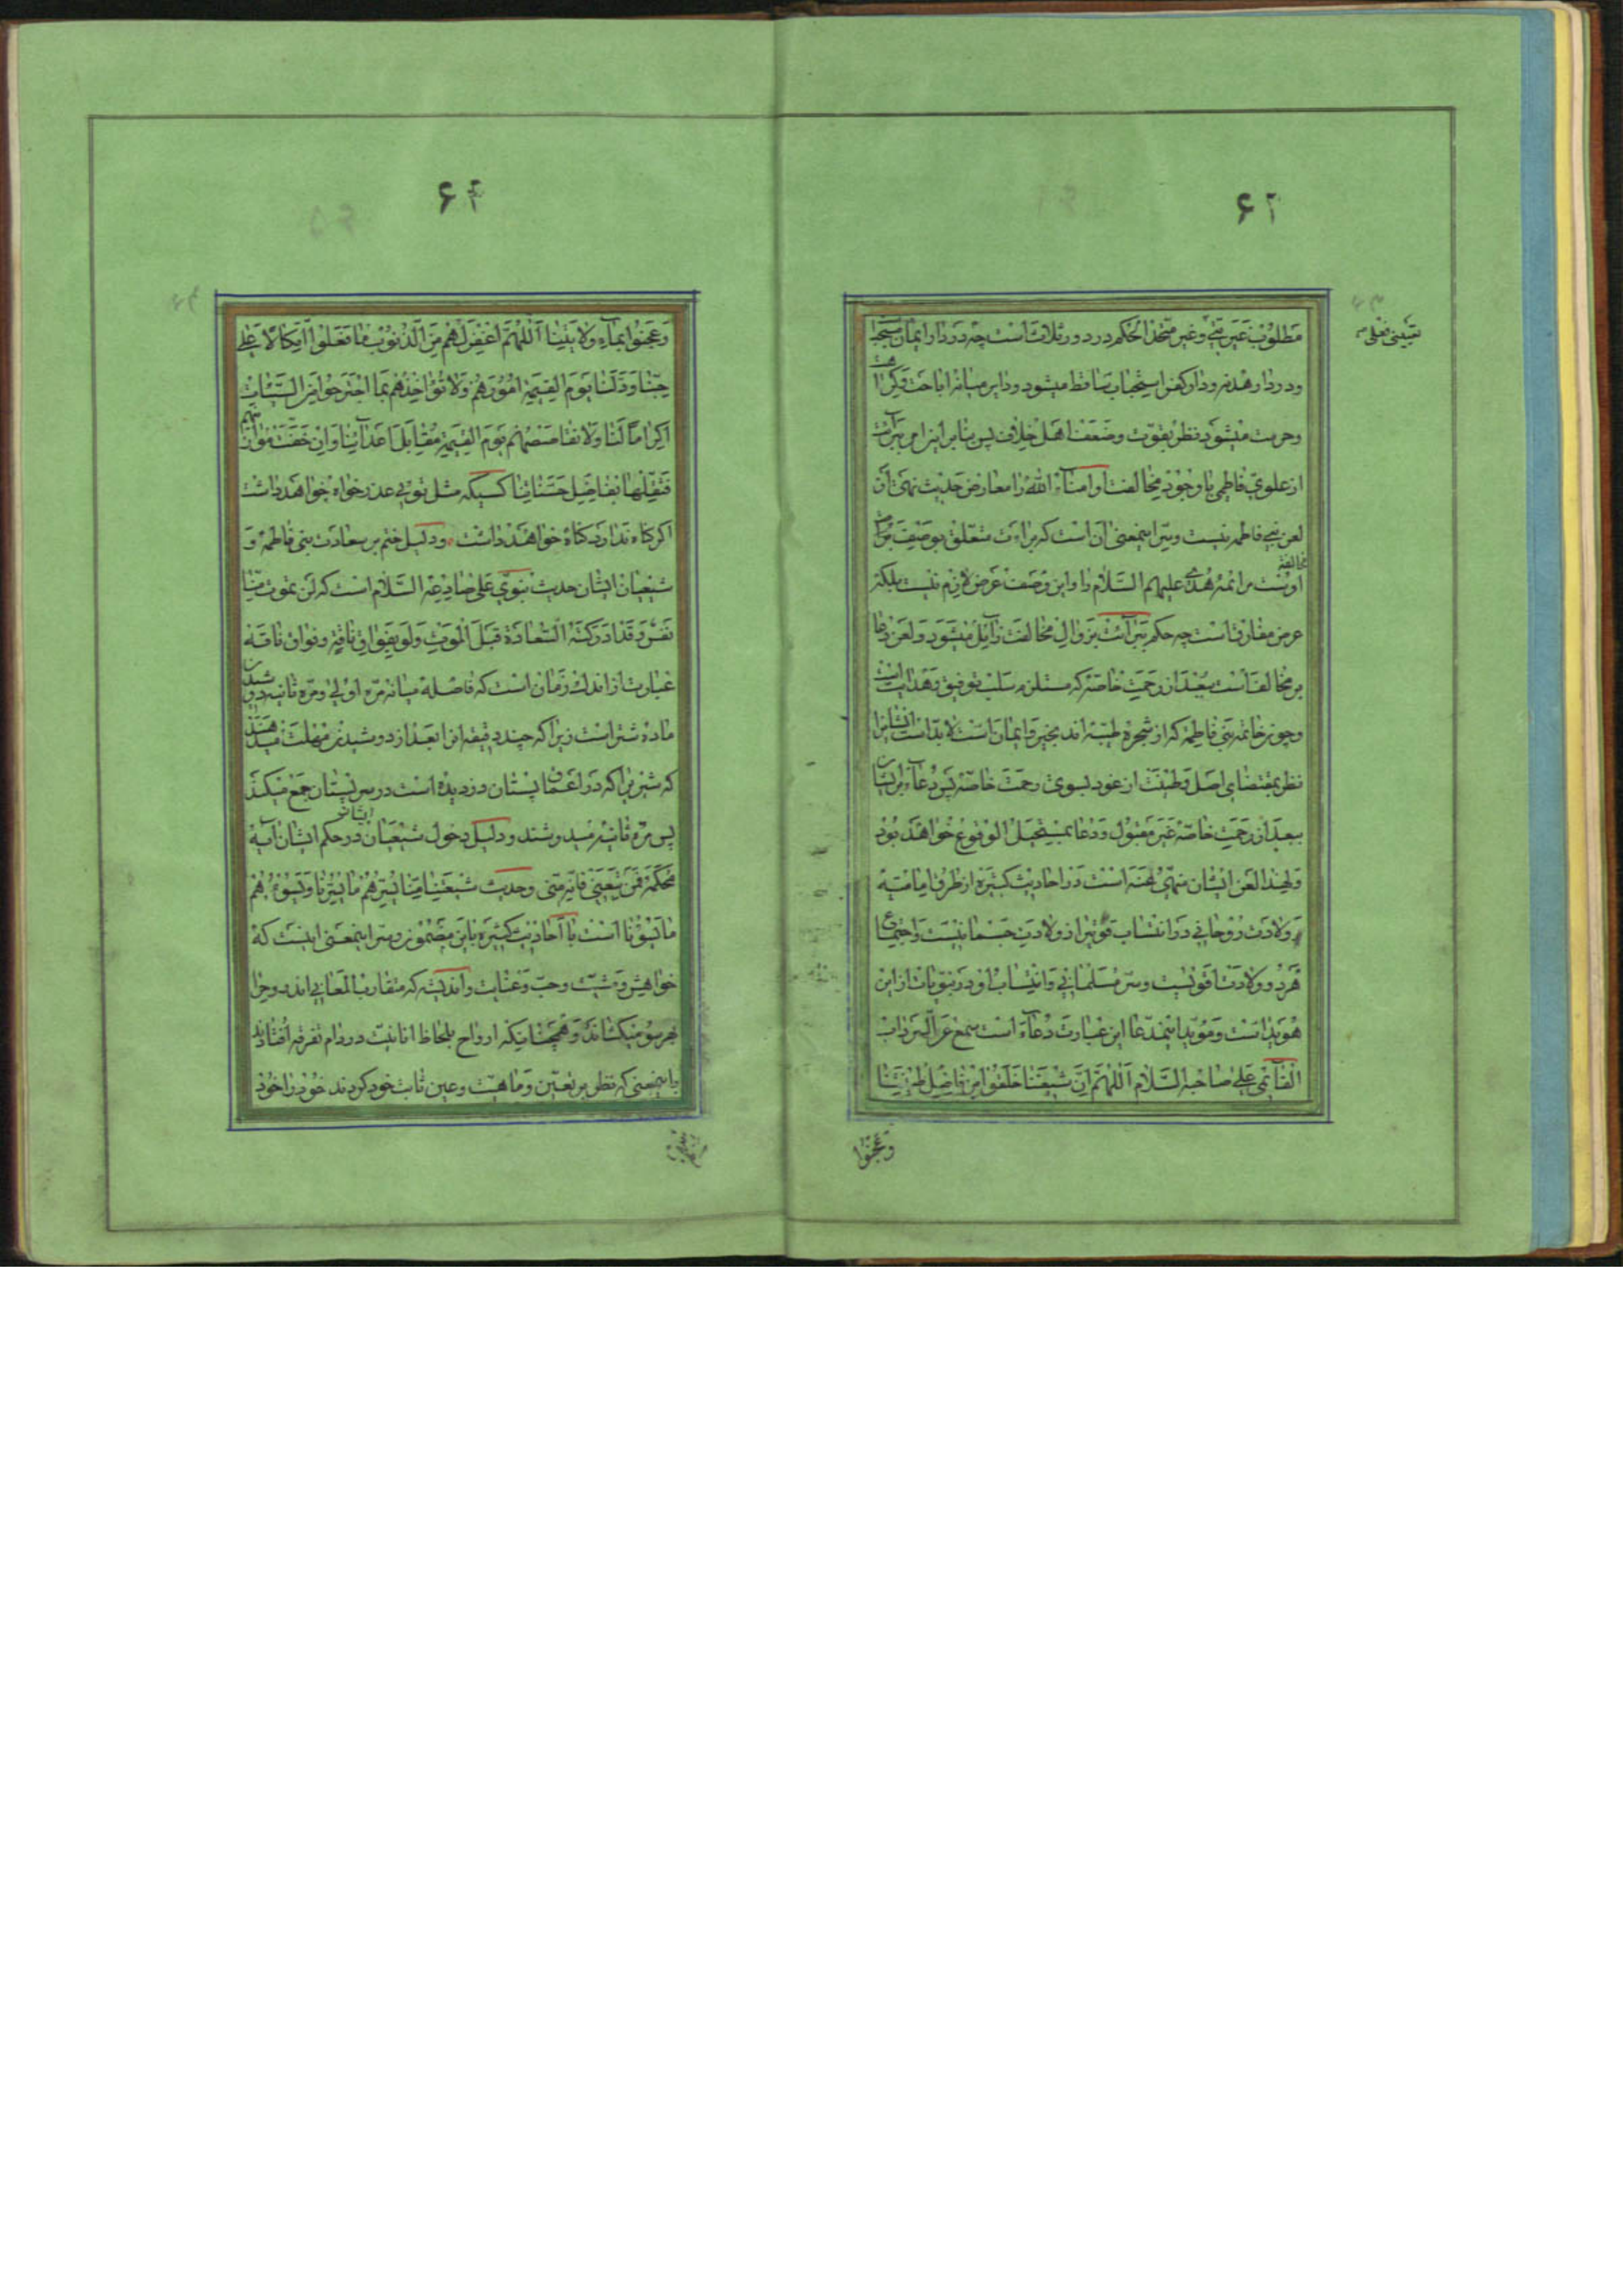 ۶۲
مطلوب غیر بتّی وغیر متّخذ الحکم در دور ثلاث است چه در دار ایمان مستحبّ
ودر دار هدنه ودار کفر استحباب ساقط میشود ودایر میانه اباحت وکراهت
وحرمت میشود نظر بقوّت وضعف اهل خلاف پس بنابراین امر برائت
از علوی فاطمی با وجود مخالفت او امناء اللّه را معارض حدیث نهی از
لعن بنی فاطمه نیست وسرّ اینمعنی آن است که برائت متعلّق بوصف
مخالفة
اوست مر ائمّه هدی علیهم السّلام را واین وصف عرض لازم نیست بلکه
عرض مفارق است چه حکم برائت بزوال مخالفت زایل میشود ولعن دعا
بر مخالف است ببعد از رحمت خاصّه که مستلزم سلب توفیق وهدایت است
وچون خاتمه بنی فاطمه که از شجره طیّبه اند بخیر وایمان است لابدّ است ایشانرا
نظر بمقتضای اصل وطینت از عود بسوی رحمت خاصّه پس دعا بر ایشان
ببعد از رحمت خاصّه غیر مقبول ودعا بمستحیل الوقوع خواهد بود
ولهذا لعن ایشان منهیّ عنه است در احادیث کثیره از طرف امامیّه
ولادت روحانی در انتساب قویتر از ولادت جسمانیست واجتماع
هر دو ولادت اقویست وسرّ مسلمانی وانتساب او در نبویات از این
هویدا است ومؤید اینمدّعا این عبارت دعاء است سمع عن السّرداب
القائمی علی صاحبه السّلام اللّهمّ انّ شیعتنا خلقوا من فاضل طینتنا
وعجنوا
۶۴
وعجنوا بماء ولایتنا اللّهمّ اغفر لهم من الذّنوب ما فعلوا اتّکالا علی
حبّنا وولّنا یوم القیمة امورهم ولا تؤاخذهم بما اجترحوا من السّیّئات
اکراما لنا ولا تقاصصهم یوم القیمة مقابل اعدائنا وان خفّت موازینهم
فثقّلها بفاضل حسناتنا کسیکه مثل تو بی عذر خواه خواهد داشت
اکر کناه ندارد کناه خواهد داشت ودلیل ختم بر سعادت بنی فاطمه و
شیعیان ایشان حدیث نبوی علی صادعه السّلام است که لن یموت منّا
نفس وقد ادرکته السّعادة قبل الموت ولو بفواق ناقة وفواق ناقه
عبارت از اندک زمان است که فاصله میانه مرّه اولی ومرّه ثانیه دوشیدن
ماده شتر است زیرا که چند دقیقه انرا بعد از دوشیدن مهلت میدهند
که شیریرا که در اعماق پستان دزدیده است در سر پستان جمع میکند
پس مرّه ثانیه میدوشند ودلیل دخول شیعیان ایشان در حکم ایشان آیه
محکمه فمن تبعنی فانّه منّی وحدیث شیعتنا منّا یسرّهم ما یسرّنا ویسوئهم
ما یسوئنا است با احادیث کثیره باین مضمون وسرّ اینمعنی اینست که
خواهش ومشیّت وحبّ وعنایت واندیشه که متقارب المعانی اند روح را
بهر سو میکشاند وهمچنانیکه ارواح بلحاظ انانیّت در دام تفرقه افتادند
باینمعنی که نظر بر تعیّن وماهیّت وعین ثابت خود کردند خود را خود